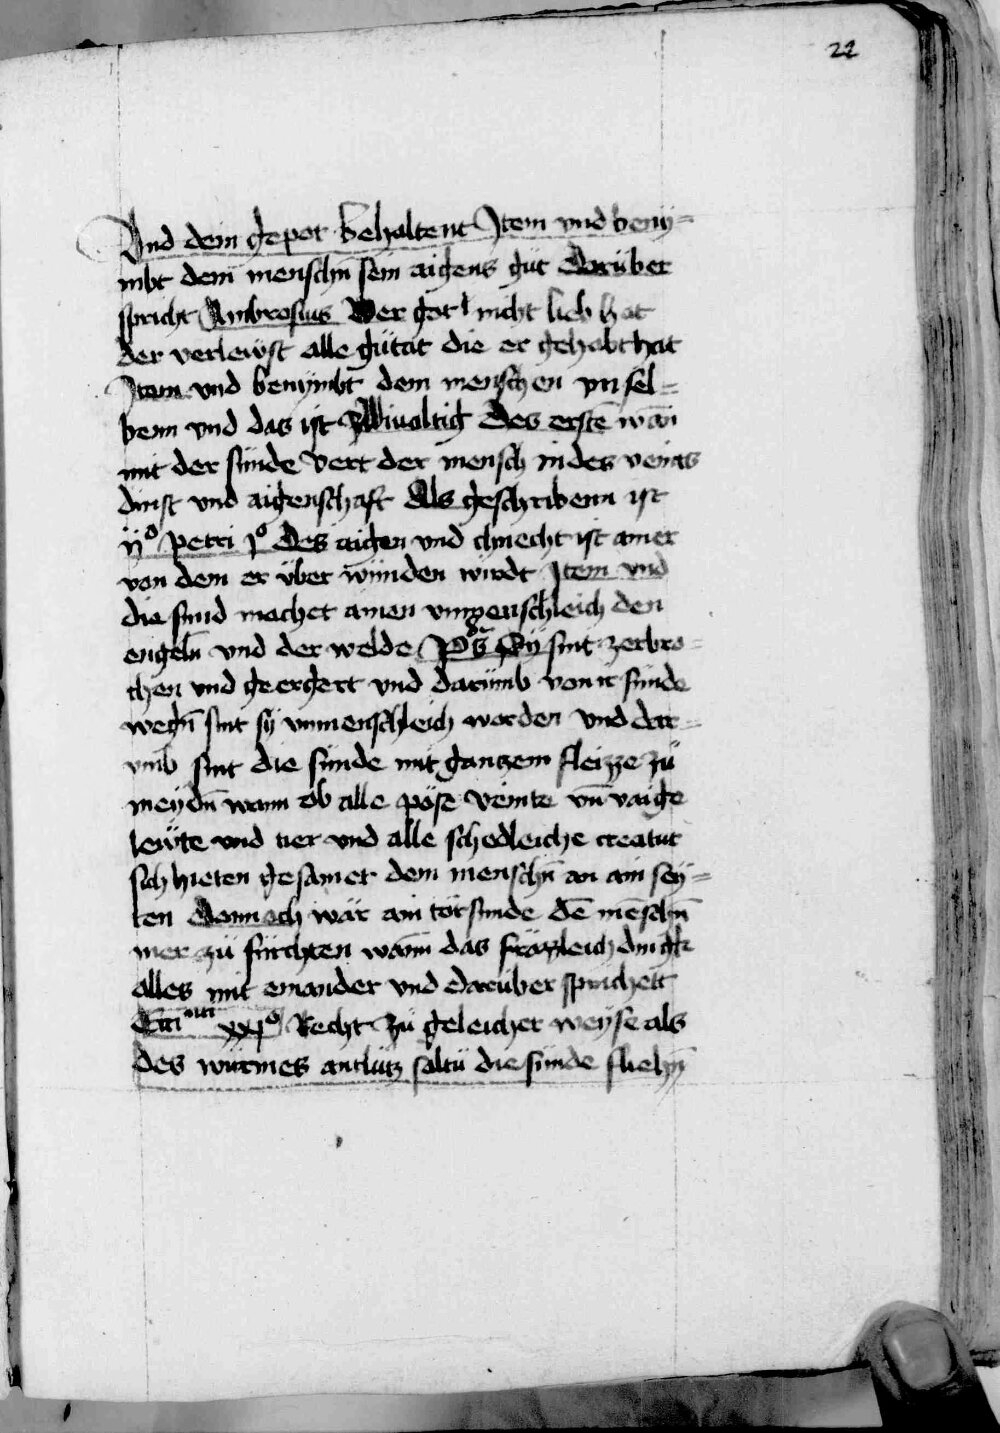 22
Vnd dein gepot behaltent Item vnd beny-
mbt dem menschn̄ sein aigens gůt Darüber
spricht Ambrosius Wer got nicht lieb hat
der verlewst alle gůtat die er gehabt hat
Item vnd benymbt dem menschen ym sel-
benn vnd das ist zwiualtig Des erstē wān
mit der sünde vert der mensch in des veints
dinst vnd aigenschaft Als geschribenn ist
ijº petri jº Des aigen vnd chnecht ist ainer
von dem er über wünden wirdt Item vnd
die sünd machet ainen vnmenschleich den
engeln̄ vnd der welde Sy sint zerbro-
chen vnd geergert vnd darümb von ir sünde
wegn̄ sint sy vnmenschleich worden vnd dar-
vmb sint die sünde mit ganczem fleizze zů
meydn̄ wann ob alle pöse veinte vn̄ vaige
lewte vnd tier vnd alle schedleiche creatur
sich hieten gesamet dem menschn̄ an ain sey-
ten Dannoch wär ain torsünde dē mēschn̄
mer zů fürchten wann das dingk
alles mit einander vnd darüber sprichett
xxjº Recht zů geleicher weyse als
des würmes antlütz soltu die sünde fliehn̄